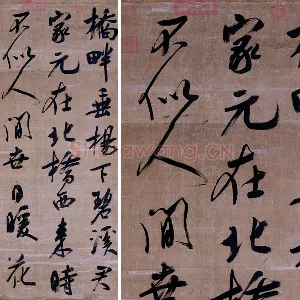 橋畔垂楊下碧溪君
家元在北橋西來時
不似人間世日暖花
家元在北橋
不似人間世